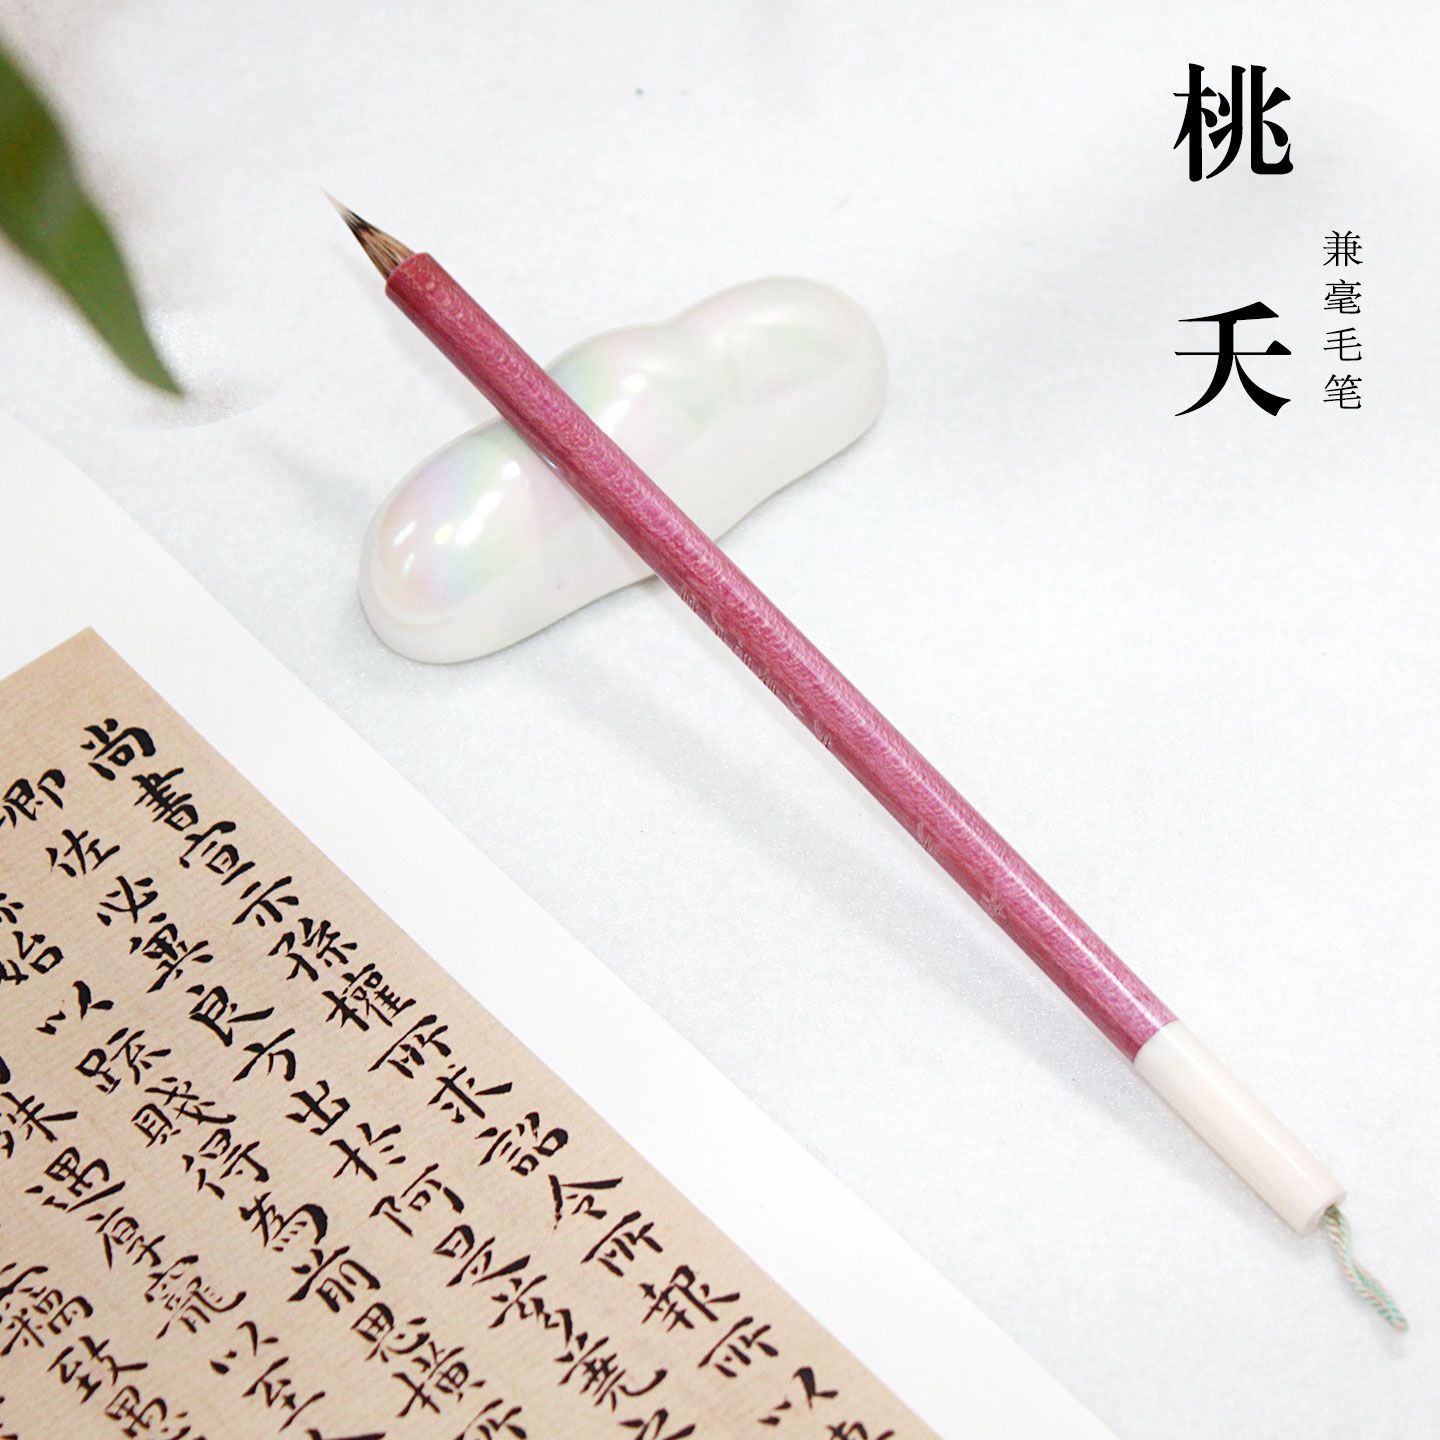 桃夭
兼毫毛笔
尚書宣示孫權所求詔令所報所以
卿佐必冀良方出於阿是芻蕘之
始以疏賤得為前恩橫所
殊遇厚寵以至
竊致愚